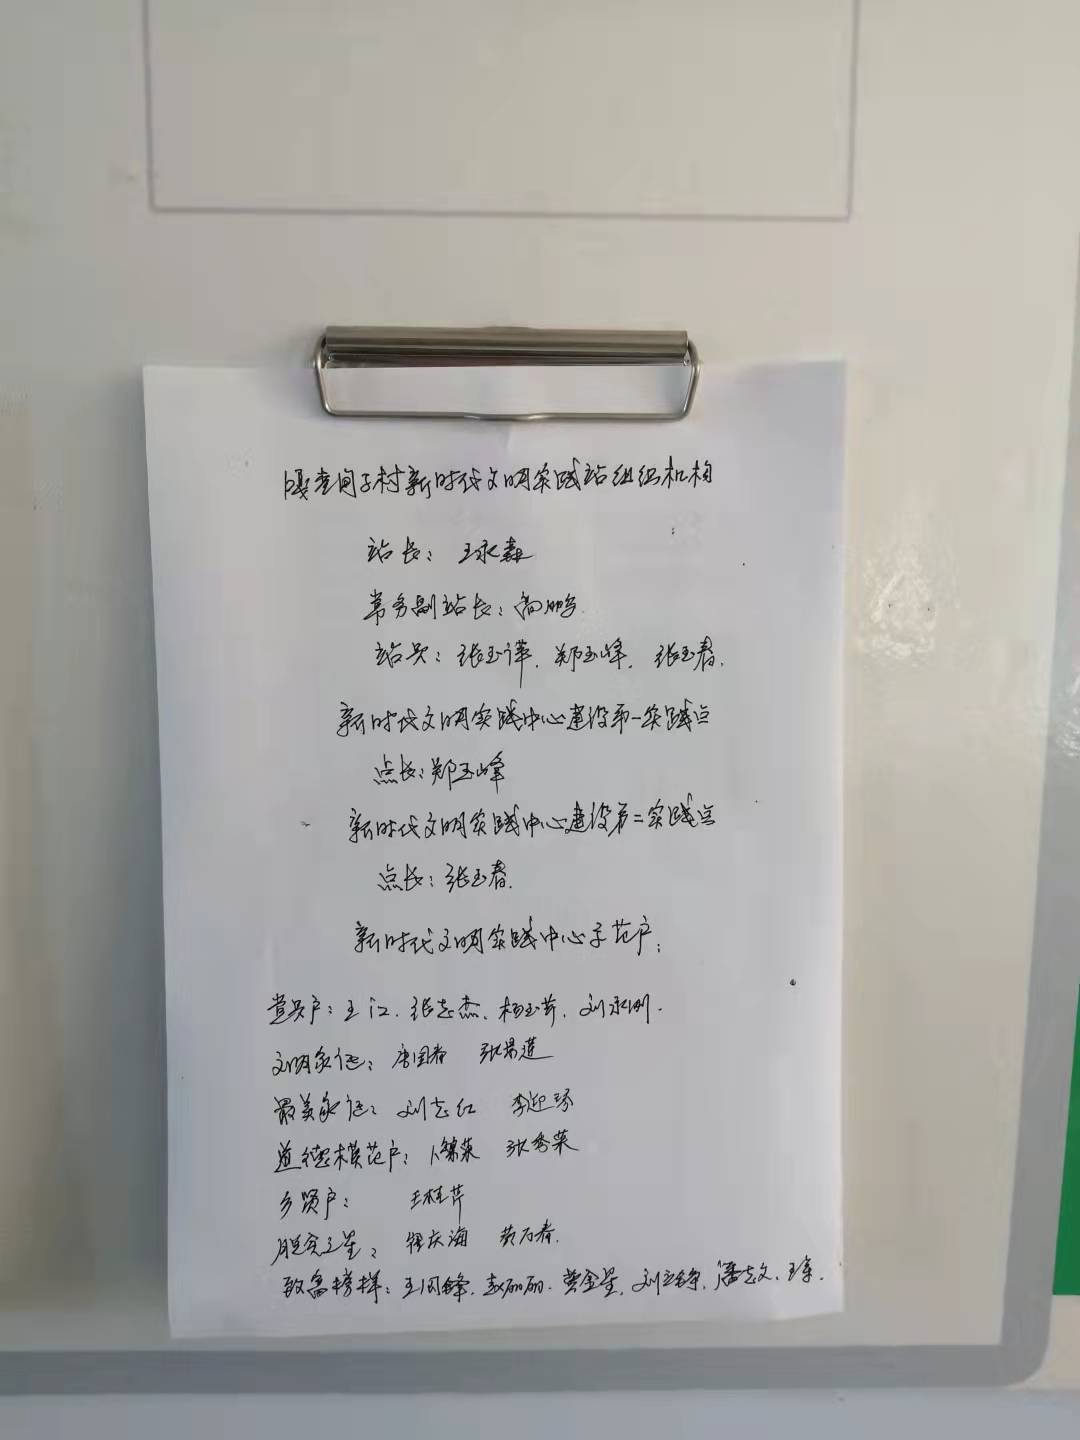 嘎查闫子村新时代文明实践站组织机构
站长：王永森
常务副站长：高鹏
站员：张玉萍、郑玉峰、张玉春.
新时代文明实践中心建设第一实践点
点长：郑玉峰
新时代文明实践中心建设第二实践点
点长：张玉春.
新时代文明实践中心示范户：
党员户：王江、张志杰、杨玉芹、刘永刚.
文明家庭：唐国春 张景莲
最美家庭：刘志红 李迎
道德模范户：卜锦荣 张秀荣
乡贤户： 王桂芹
脱贫之星：庆海 黄万春.
致富榜样：王国锋、赵丽丽、黄金星、刘立锋、潘志文、王